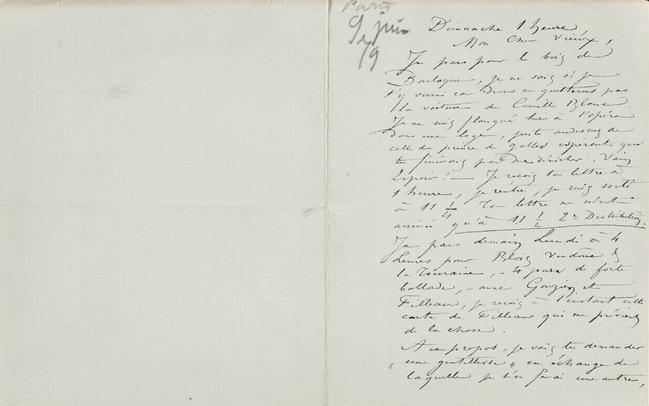 Paris
9 juin
79
Dimanche 1 heure
Mon cher vieux,
Je pars pour le bois de
Boulogne, je ne sais si je
t'y verrai car nous ne quitterons pas
la voiture de Camille Blanc.
Je me suis plongé hier à l'opéra
dans une loge, juste audessus de
celle du prince de galles espérant que
tu finirais par me dénicher. Vain
Espoir! — Je reçois ta lettre à
1 heure, je rentre, je suis sorti
à 11 1/4 Ta lettre ne m'est
arrivée qu'à 11 1/2 2e Distribution.
Je pars demain Lundi à 4
heures pour Blois Vendôme &
la Touraine, - 4 jours de forte
ballade, - avec Gouzien et
Filleau, je reçois à l'instant cette
carte de Filleau qui me prévient
de la chose.
A ce propos, je vais te demander
"une gentillesse" en échange de
laquelle je t'en ferai une autre,